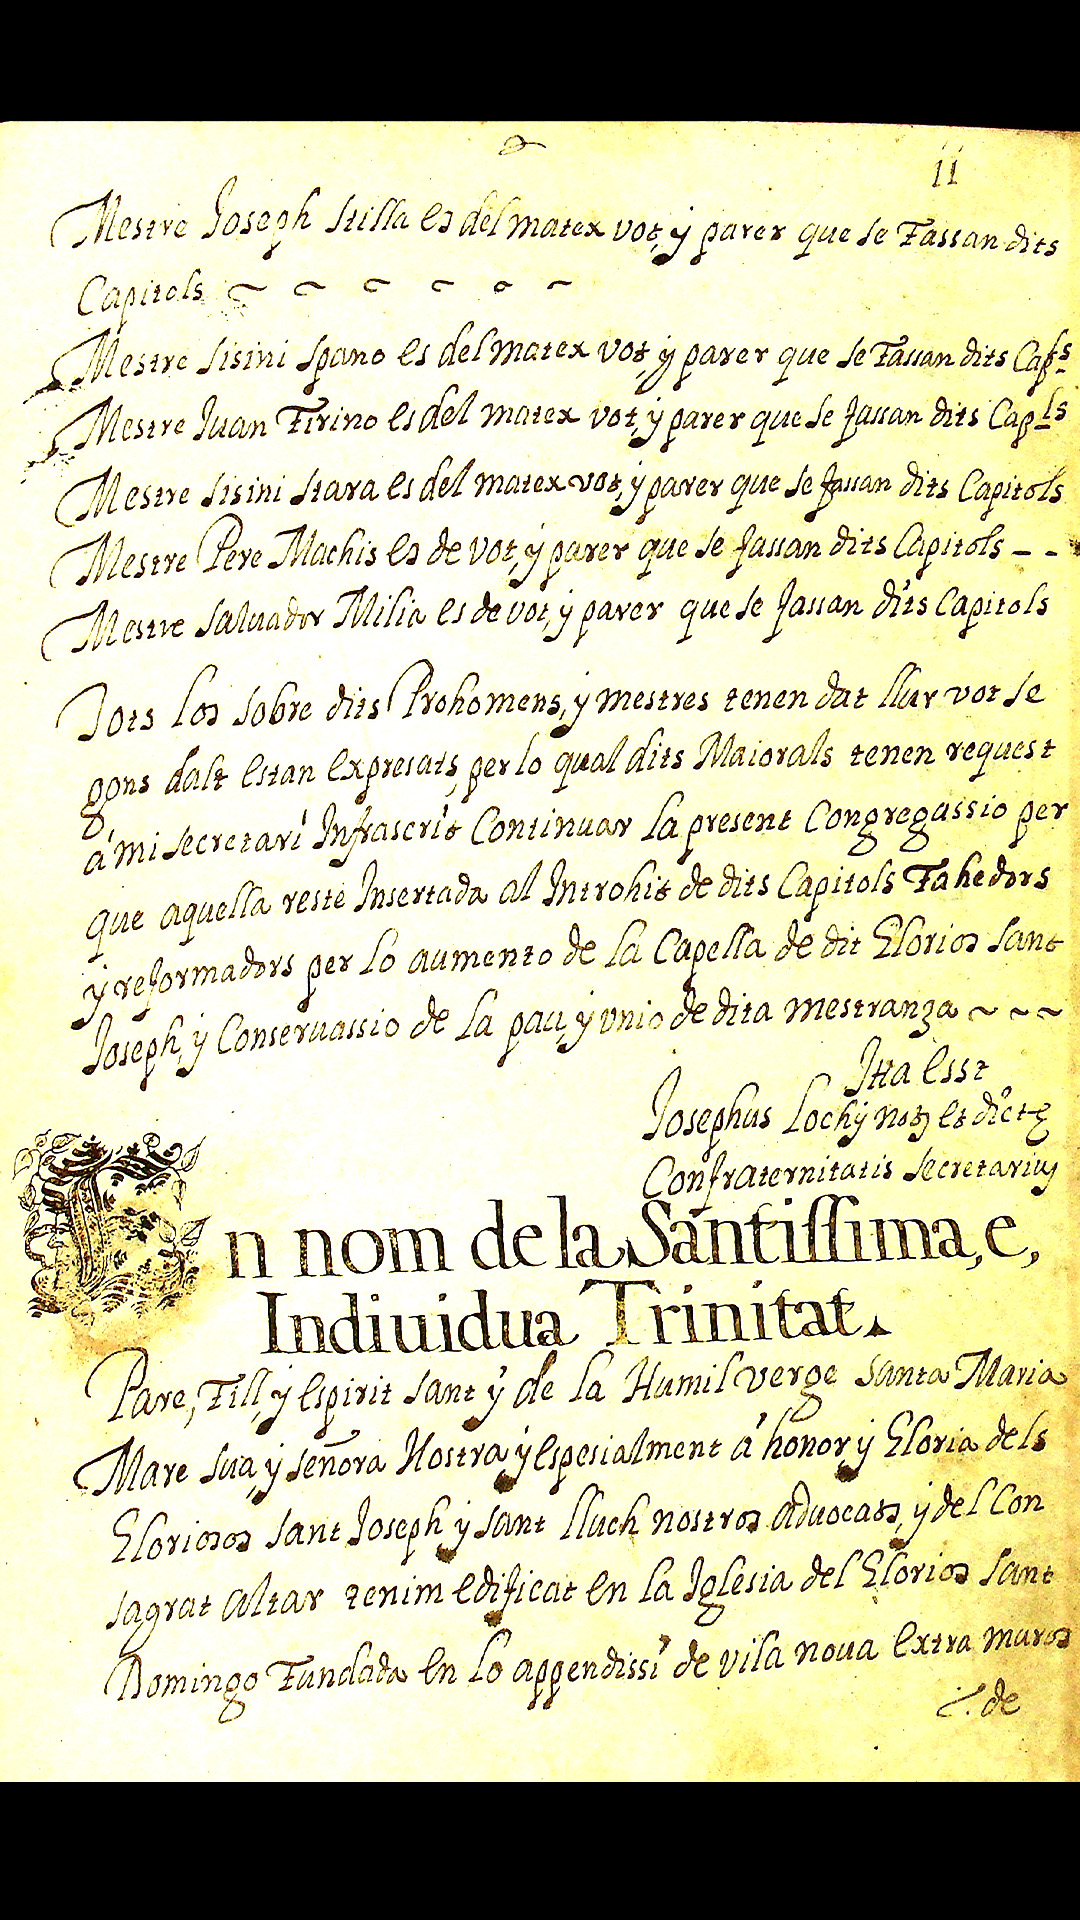 11
Mestre Joseph Stilla es del matex vot, y parer que se Fassan dits
Capitols
Mestre Sisini Spano es del matex vot, y parer que se Fassan dits Capls
Mestre Juan Firino es del matex vot, y parer que se fassan dits Capls
Mestre Sisini Stara es del matex vot, y parer que se fassan dits Capitols
Mestre Pere Machis es de vot, y parer que se fassan dits Capitols - -
Mestre Saluador Milia es de vot, y parer que se fassan dits Capitols
Tots los sobre dits Prohomens, y mestres tenen dat llur vot se
gons dalt estan expresats, per lo qual dits Maiorals tenen request
á mi secretari Infrascrit Continuar la present Congregassio per
que aquella reste Insertada al Introhit de dits Capitols Fahedors
y reformadors per lo aumento de la Capella de dit Glorios Sant
Joseph, y Conseruassio de la pau, y vnio de dita mestranza ~ ~ ~
Itta Esst
Josephus Lochy not et dict
Confraternitatis Secretarius
En nom de la Santissima, e,
Indiuidua Trinitat.
Pare, Fill, y Espirit Sant y de la Humil Verge Santa Maria
Mare sua, y señora Nostra y espesialment á honor, y Gloria dels
Gloriosos Sant Joseph y Sant lluch nostros aduocats, y del Con
sagrat altar tenim edificat en la Iglesia del Glorios Sant
Domingo Fundada en lo appendissi de vila noua extra muros
de